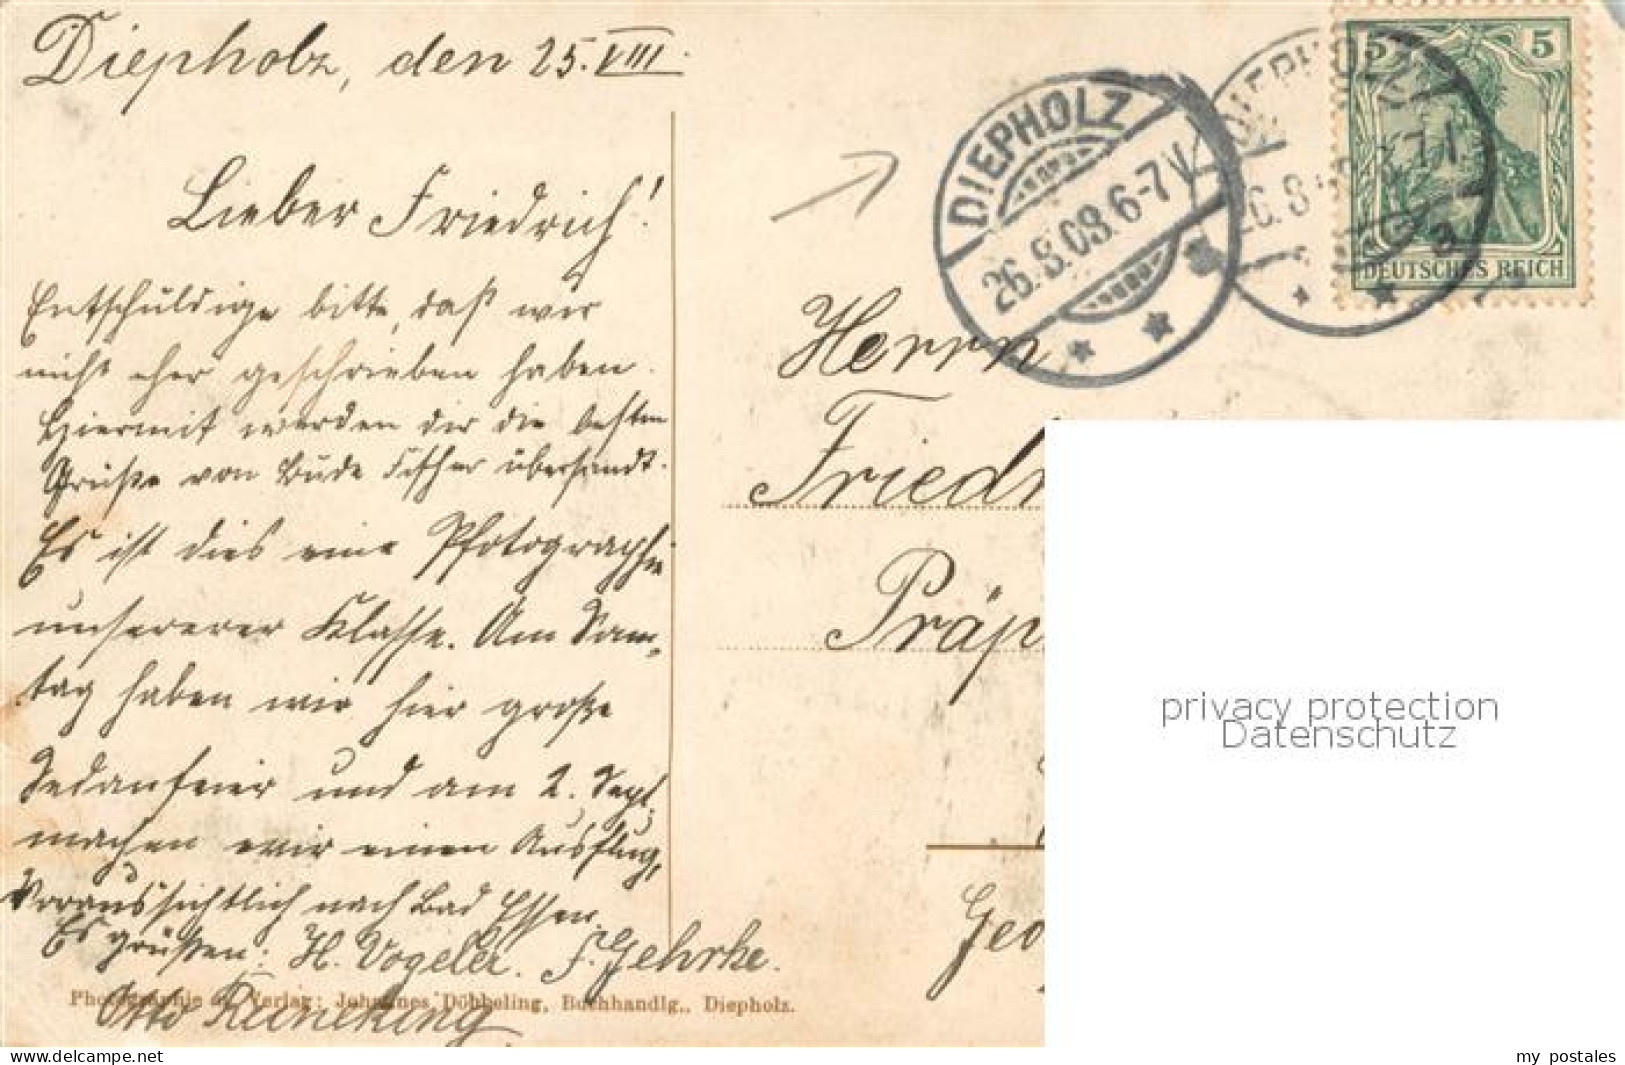 Diepholz, den 25. VIII.
Lieber Friedrich!
Entschuldige bitte, daß wir
nicht eher geschrieben haben.
Hiermit werden dir die besten
Grüße von Bude Fischer übersandt.
Es ist dies eine Pfotographie
unsererer Klasse. Am Sam-
tag haben wir hier große
Sedanfeier und am 2. Sept.
machen wir einen Ausflug,
Voraussichtlich nach Bad Essen.
Es grüßen: H. Vogeler. F. Gehrke.
Otto Reineking
Photographie u. Verlag: Johannes Döbbeling, Buchhandlg., Diepholz.
DIEPHOLZ
26.8.08.6-7V
DIEPHOLZ
26.8.
5 5
DEUTSCHES REICH
Herrn
Friedr
Präp
Geo
privacy protection
Datenschutz
www.ansichtskartenversand.com
my postales